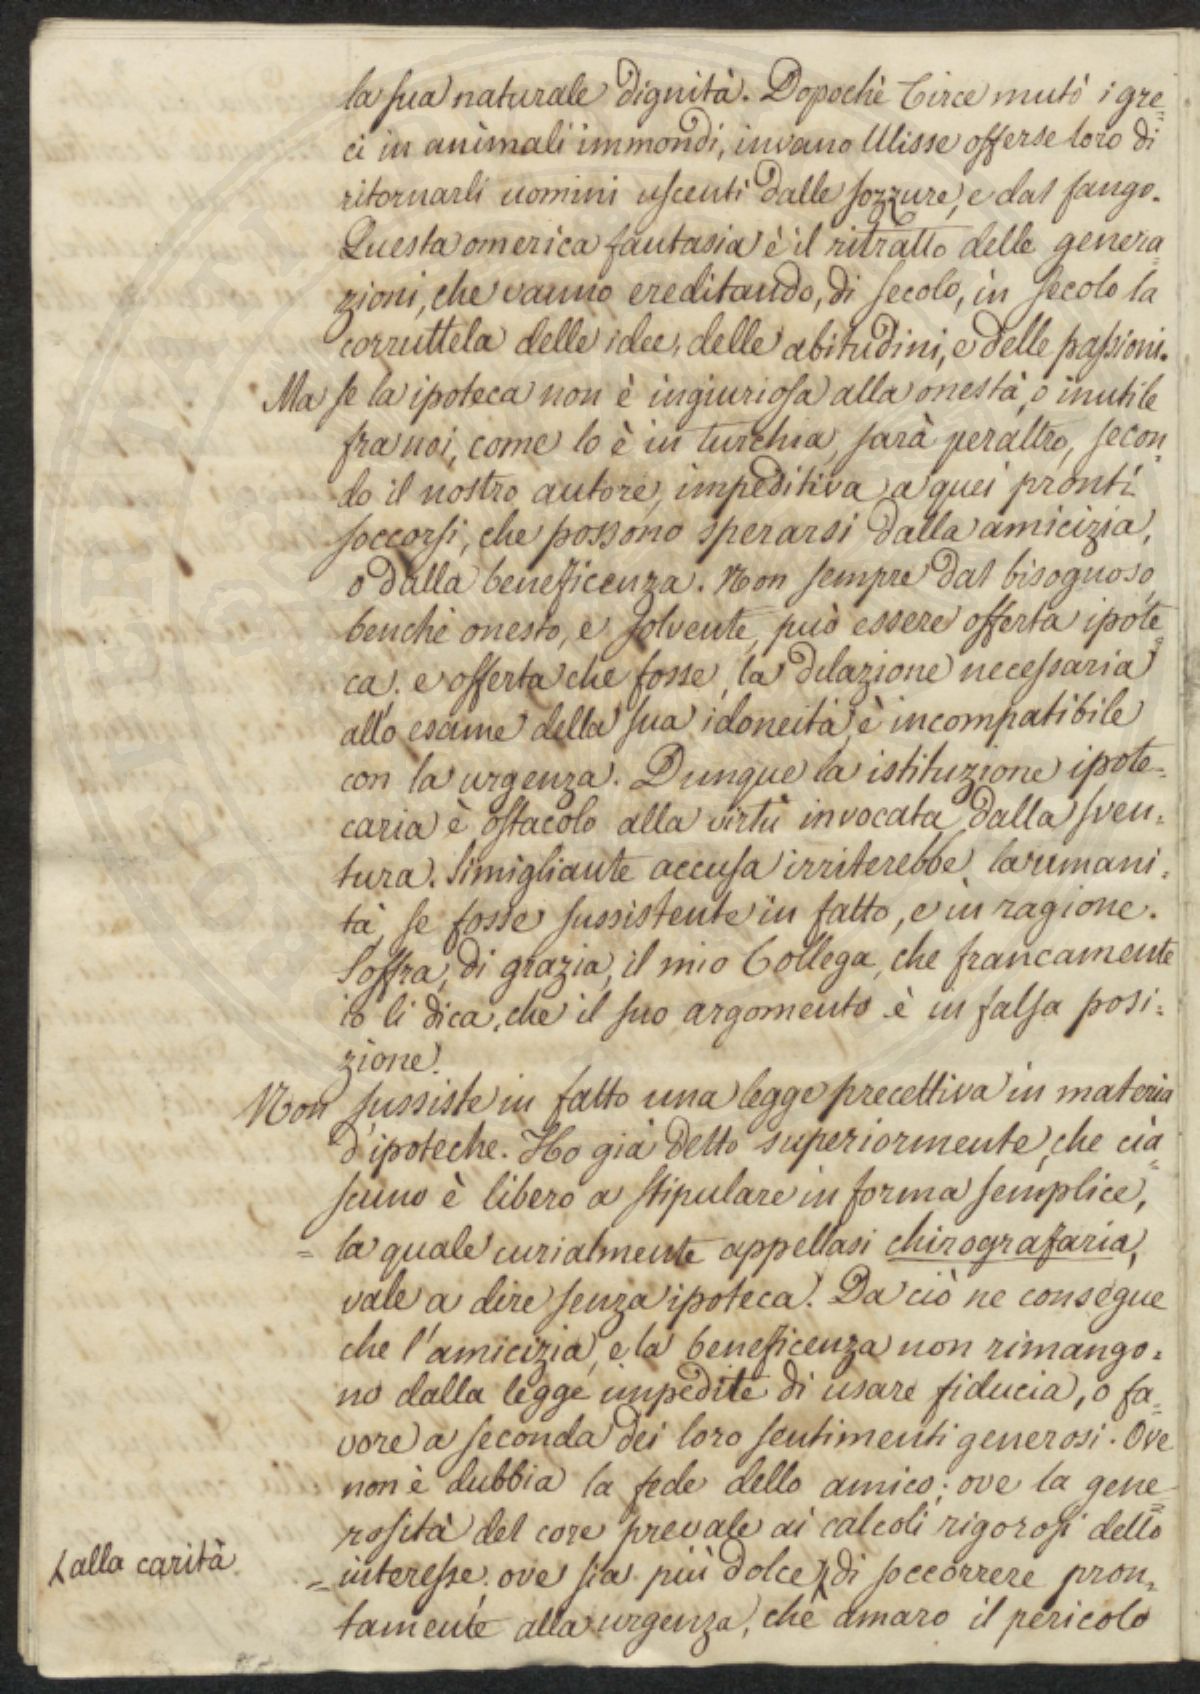 la sua naturale dignità. Dopochè Circe mutò i gre=
ci in animali immondi, invano Ulisse offerse loro di
ritornarli uomini uscenti dalle sozzure, e dal fango.
Questa omerica fantasia è il ritratto delle genera=
zioni, che vanno ereditando, di secolo, in secolo la
corruttela delle idee, delle abitudini, e delle passioni.
Ma se la ipoteca non è ingiuriosa alla onestà, o inutile
fra noi, come lo è in turchia, sarà peraltro, secon=
do il nostro autore, impeditiva a quei pronti
soccorsi, che possono sperarsi dalla amicizia,
o dalla beneficenza. Non sempre dal bisognoso,
benchè onesto, e solvente, può essere offerta ipote=
ca; e offerta che fosse, la dilazione necessaria
allo esame della sua idoneità, è incompatibile
con la urgenza. Dunque la istituzione ipote=
caria è ostacolo alla virtù invocata dalla sven=
tura. Simigliante accusa irriterebbe la umani=
tà, se fosse sussistente in fatto, e in ragione.
Soffra, di grazia, il mio Collega, che francamente
io li dica, che il suo argomento è in falsa posi=
zione.
Non sussiste in fatto una legge precettiva in materia
d'ipoteche. Ho già detto superiormente, che cia=
scuno è libero a stipulare in forma semplice,
= la quale curialmente appellasi chirografaria,
vale a dire senza ipoteca. Da ciò ne consegue
che l'amicizia, e la beneficenza non rimango=
no dalla legge impedite di usare fiducia, o fa=
vore a seconda dei loro sentimenti generosi. Ove
non è dubbia la fede dello amico; ove la gene=
rosità del core prevale ai calcoli rigorosi dello
= interesse; ove sia più dolce di soccorrere pron=
alla carità
tamente alla urgenza, che amaro il pericolo